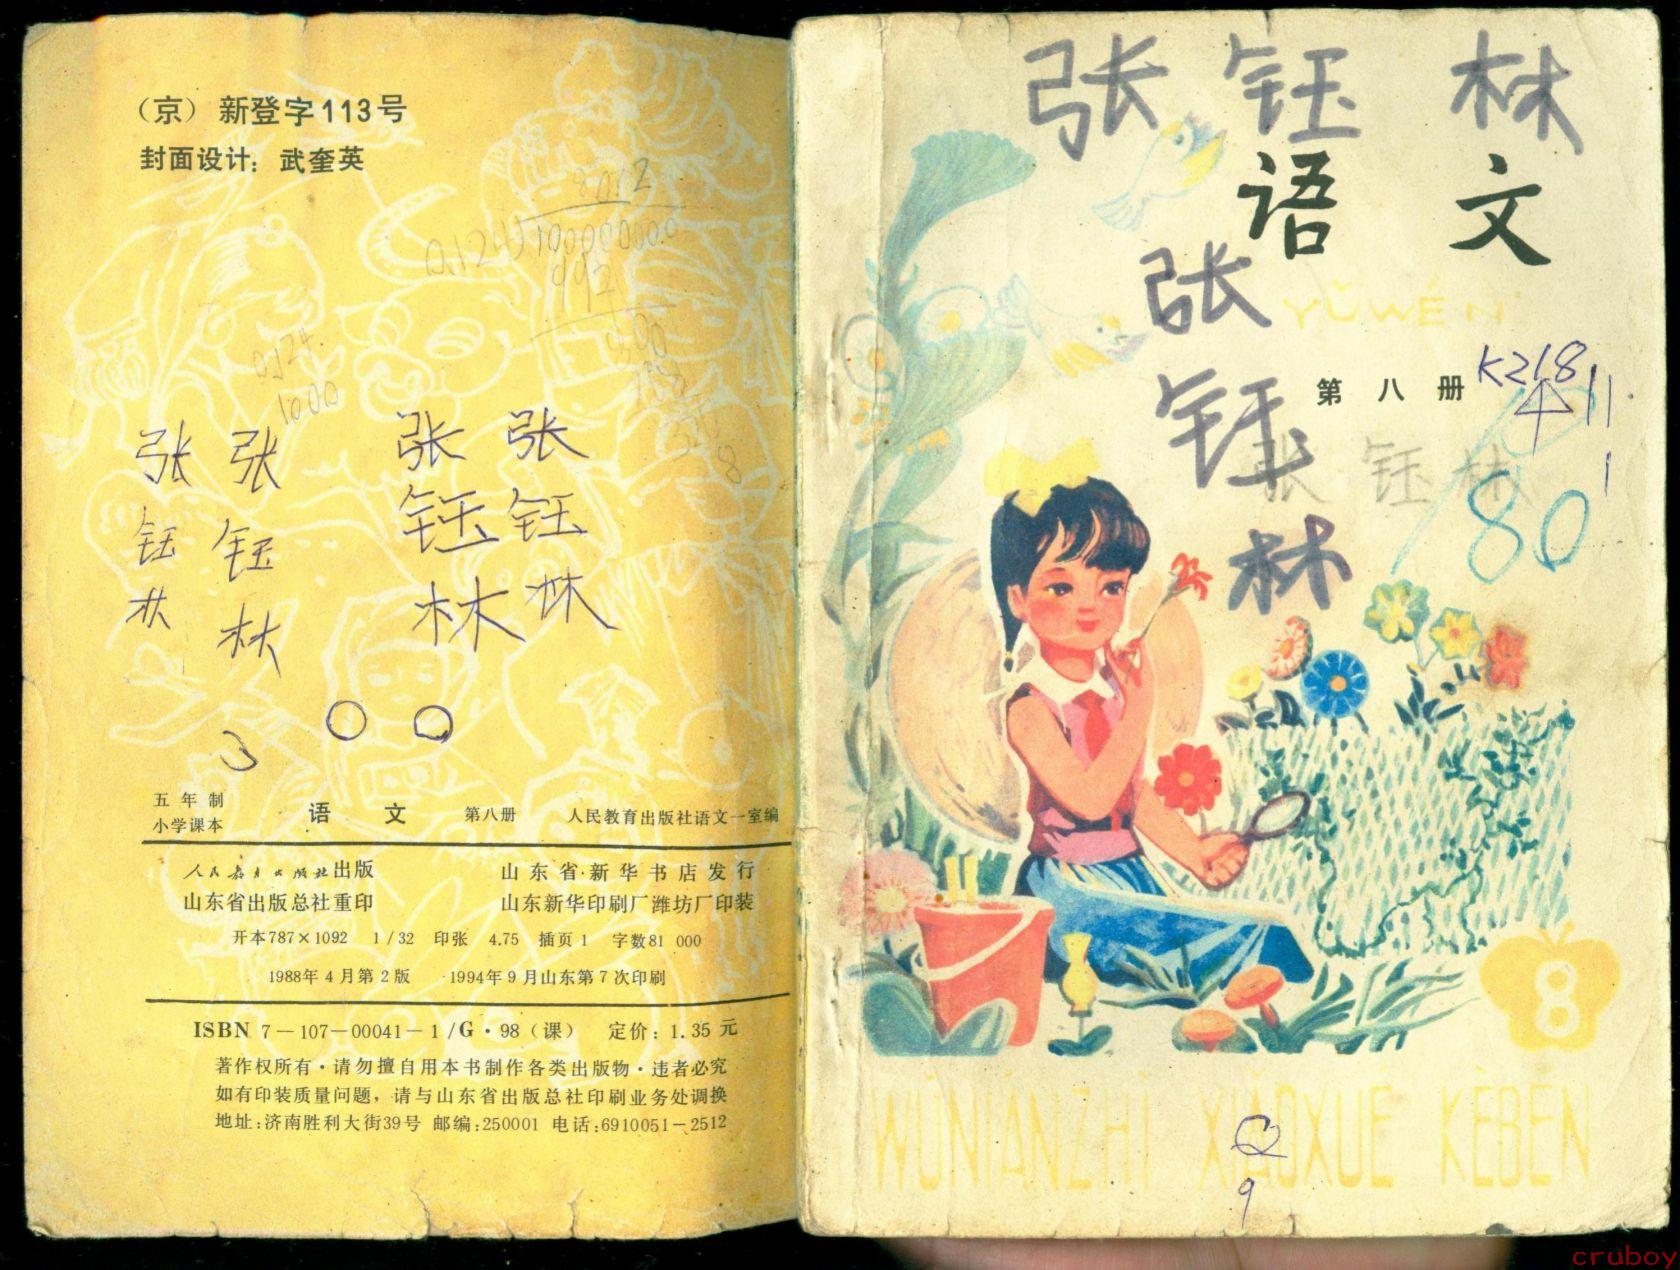 (京)新登字113号
封面设计：武奎英
8 0 1 2
0.124
1000
张 张 张 张
钰 钰 钰 钰
林 林 林 林
五年制
小学课本
语 文 第八册 人民教育出版社语文一室编
人民教育出版社出版 山东省新华书店发行
山东省出版总社重印 山东新华印刷厂潍坊厂印装
开本787×1092 1/32 印张 4.75 插页1 字数81 000
1988年4月第2版 1994年9月山东第7次印刷
ISBN 7-107-00041-1/G·98(课) 定价：1.35元
著作权所有·请勿擅自用本书制作各类出版物·违者必究
如有印装质量问题，请与山东省出版总社印刷业务处调换
地址:济南胜利大街39号 邮编:250001 电话:6910051-2512
张 钰 林
语 文
YǓWÉN
张
钰
林
第八册
K218
张 钰 林
80
8
WǓNIÁNZHÌ XIǍOXUÉ KÈBĚN
9
cruboy